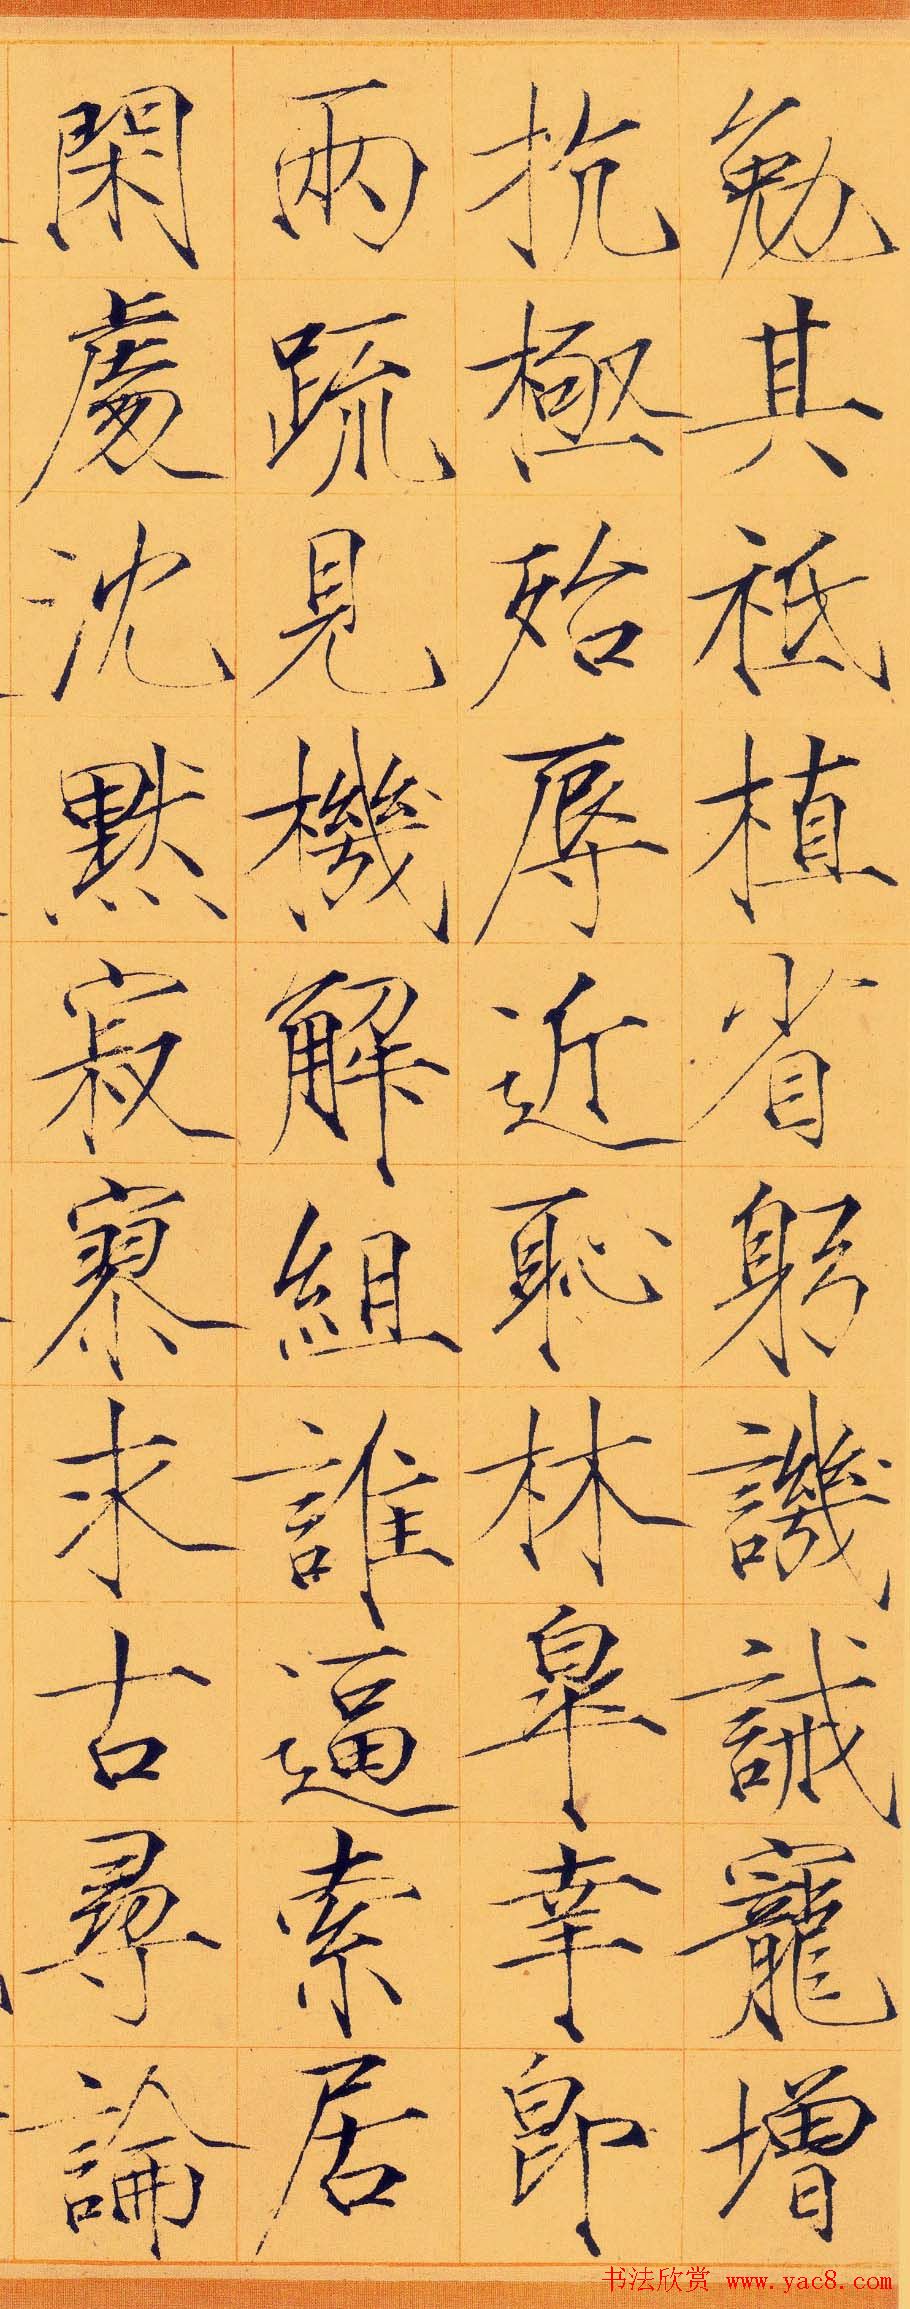 勉其祗植省躬譏誡寵增
抗極殆辱近恥林皋幸即
兩疏見機解組誰逼索居
閑處沈默寂寥求古尋論
书法欣赏 www.yac8.com